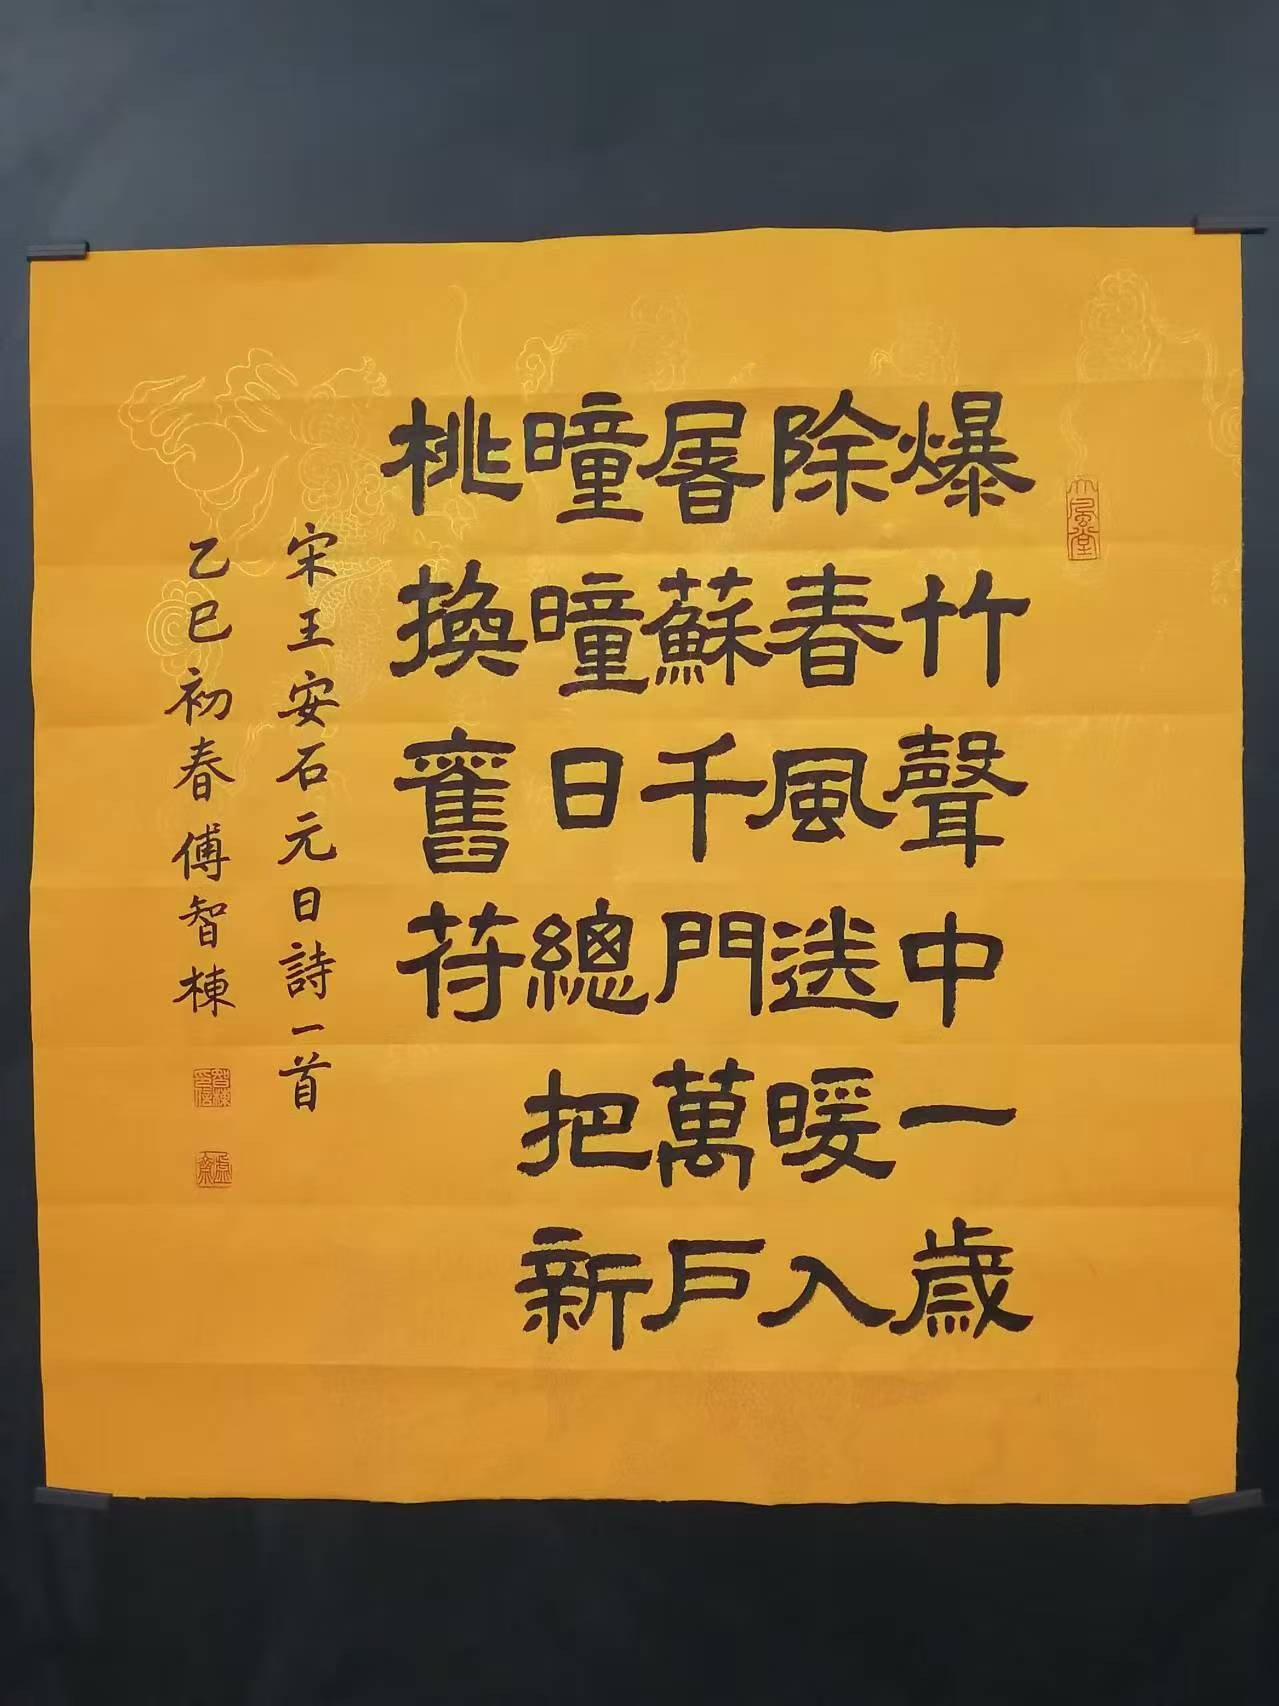 爆竹聲中一歲
除春風送暖入
屠蘇千門萬户
曈曈日總把新
桃換舊符
宋王安石元日詩一首
乙巳初春傅智棟
大風堂
智棟印信